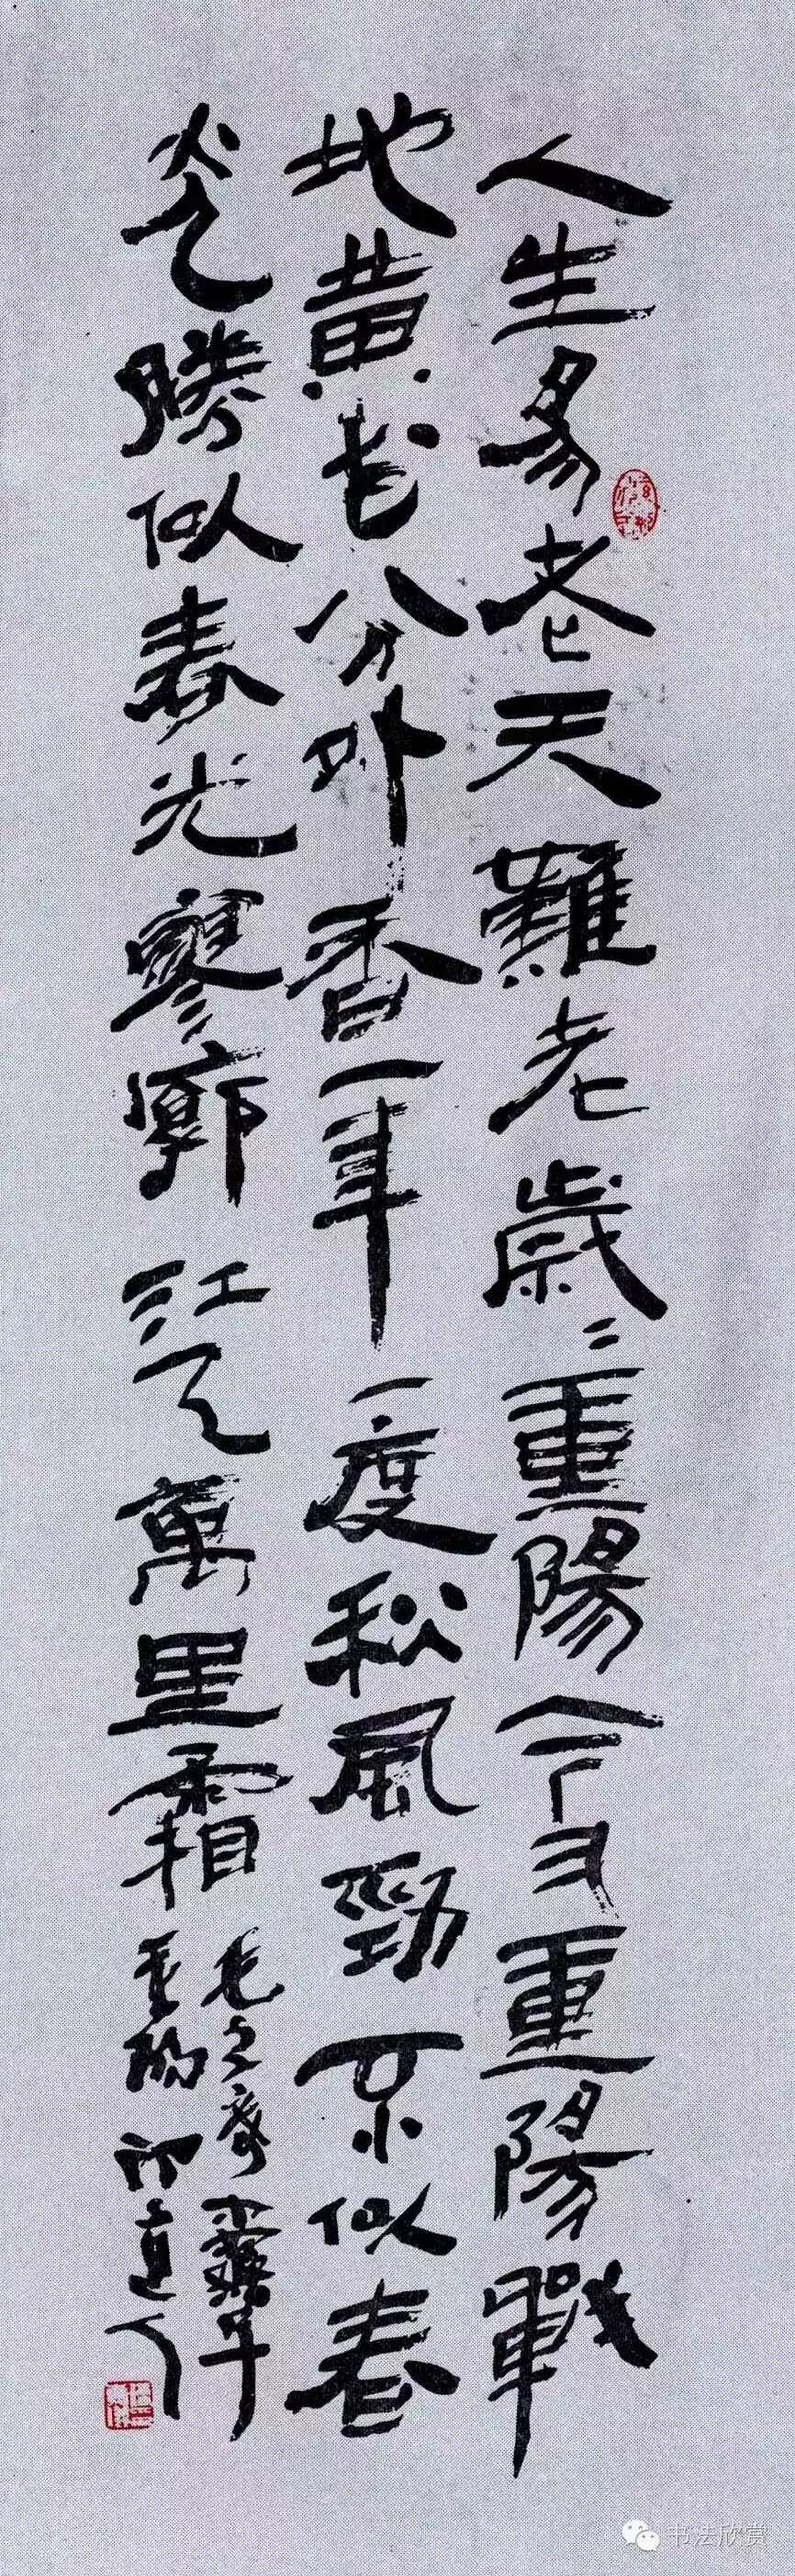 人生易老天難老歲〻重陽今又重陽戰
地黃花分外香一年一度秋風勁不似春
光勝似春光寥廓江天萬里霜
毛主席
重陽 道人
书法欣赏